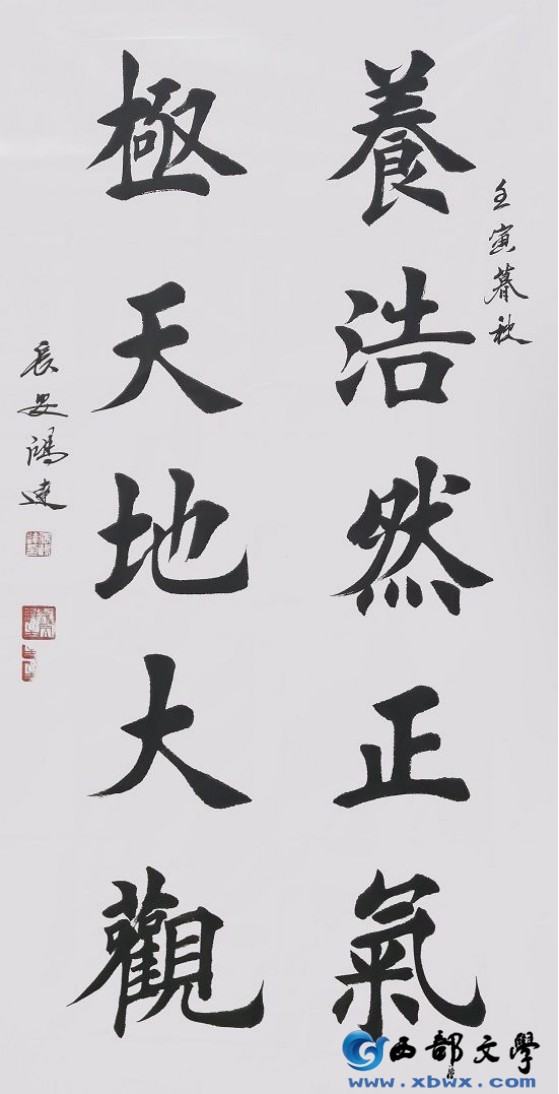 壬寅暮秋
養浩然正氣
極天地大觀
長安鴻達
西部文學
www.xbwx.com